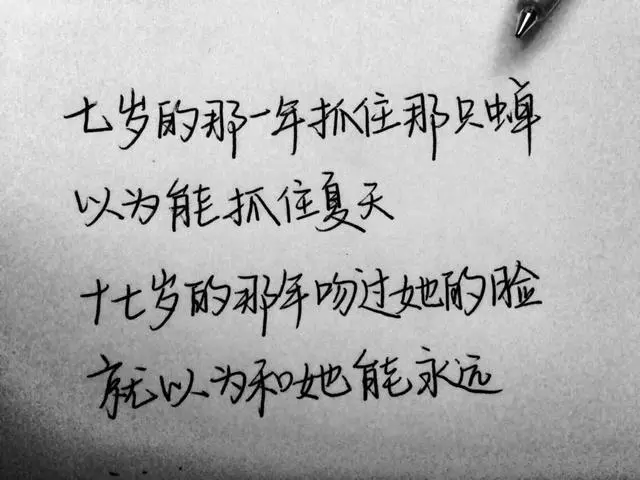 七岁的那一年抓住那只蝉
以为能抓住夏天
十七岁的那年吻过她的脸
就以为和她能永远